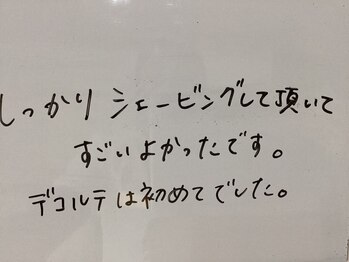 しっかり シェービングして頂いて
すごいよかったです。
デコルテは初めてでした。